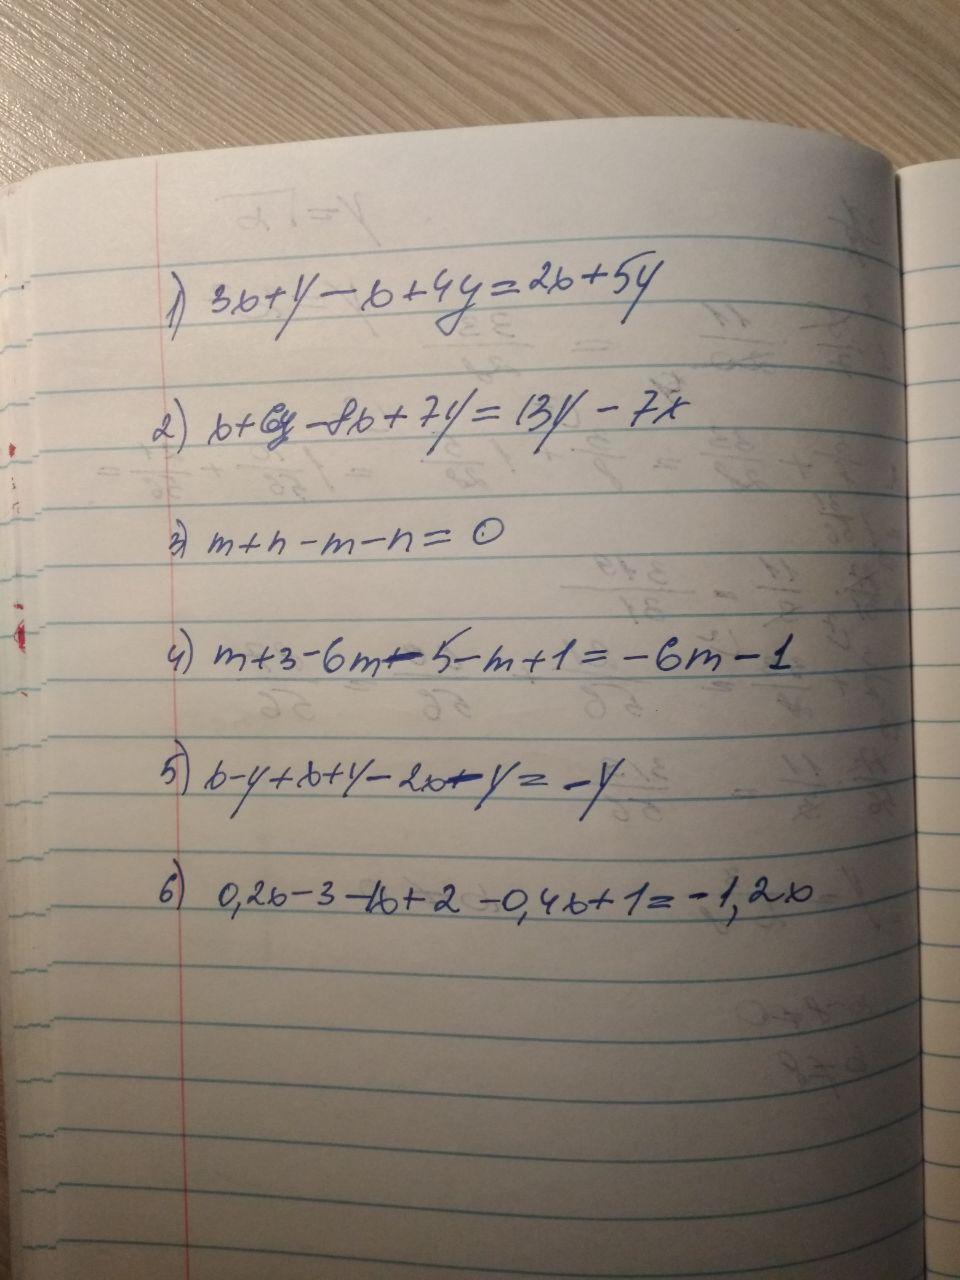 1) 3x+y-x+4y=2x+5y
2) x+6y-8x+7y=13y-7x
3) m+n-m-n=0
4) m+3-6m-5-m+1=-6m-1
5) x-y+x+y-2x-y=-y
6) 0,2x-3-1x+2-0,4x+1=-1,2x